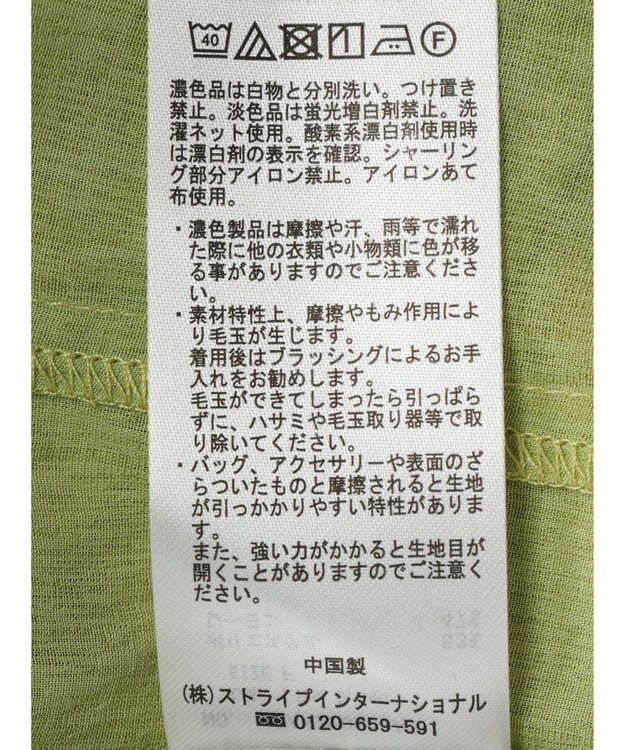 40
F
濃色品は白物と分別洗い。つけ置き
禁止。淡色品は蛍光増白剤禁止。洗
濯ネット使用。酸素系漂白剤使用時
は漂白剤の表示を確認。シャーリン
グ部分アイロン禁止。アイロンあて
布使用。
・濃色製品は摩擦や汗、雨等で濡れ
た際に他の衣類や小物類に色が移
る事がありますのでご注意くださ
い。
・素材特性上、摩擦やもみ作用によ
り毛玉が生じます。
着用後はブラッシングによるお手
入れをお勧めします。
毛玉ができてしまったら引っぱら
ずに、ハサミや毛玉取り器等で取
り除いてください。
・バッグ、アクセサリーや表面のざ
らついたものと摩擦されると生地
が引っかかりやすい特性がありま
す。
また、強い力がかかると生地目が
開くことがありますのでご注意く
ださい。
中国製
(株)ストライプインターナショナル
0120-659-591